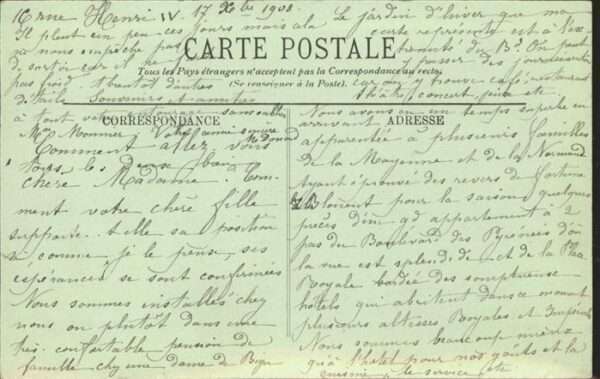 rue Henri IV 17 Xbre 1908.
Il pleut un peu ces jours mais cela
ne nous empêche pas
de sortir car il ne fait
pas froid bientôt d'autres
détails Souvenirs
à tout votre
Mme Monnier Votre amie sincère
Le jardin d'hiver que ma
carte représente est à
du Bd. On peut
y passer des journées
car on y trouve café restaurant
théâtre, concert, etc
CARTE POSTALE
Tous les Pays étrangers n'acceptent pas la Correspondance au recto.
(Se renseigner à la Poste).
CORRESPONDANCE
Comment allez vous
tous les deux
chère Madame? Com-
ment votre chère fille
supporte-t-elle sa position
si comme je le pense, ses
espérances se sont confirmées
Nous sommes installés chez
nous ou plutôt dans une
très confortable pension de
famille chez une dame de
ADRESSE
Nous avons eu un temps superbe en
arrivant
apparentée à plusieurs familles
de la Mayenne et de la Normandie
Ayant éprouvé des revers de fortune
loient pour la saison quelques
pièces d'un gd appartement à 2
pas du Boulevard des Pyrénées dont
la vue est splendide et de la Place
Royale bordée des somptueux
hôtels qui abritent dans ce moment
plusieurs altesses Royales et Impériales
Nous sommes beaucoup mieux
qu'à l'hôtel pour nos goûts et la
cuisine, le service etc